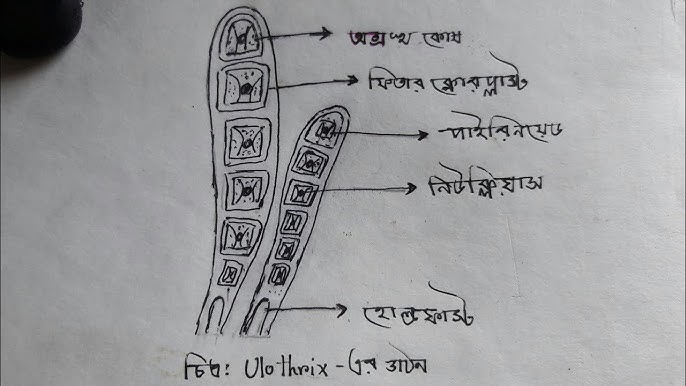 অগ্রস্থ কোষ
ফিতার ক্লোরপ্লাস্ট
পাইরিনয়েড
নিউক্লিয়াস
হোল্ডফাস্ট
চিত্র: Ulothrix-এর গঠন